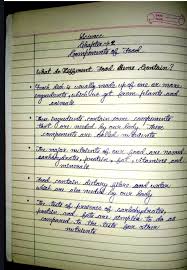 Science
Chapter - 2
Components of Food
What do Different Food Items Contain?
Each dish is usually made up of one or more
ingredients, which we get from plants and
animals
These ingredients contain some components
that are needed by our body. These
components are called nutrients
The major nutrients of our food are named
carbohydrates, protein, fat, vitamins and
minerals
Food contain dietary fibre and water
which are also needed by our body
The tests of presence of carbohydrates,
protein and fats are simpler to do as
compared to the tests for other
nutrients